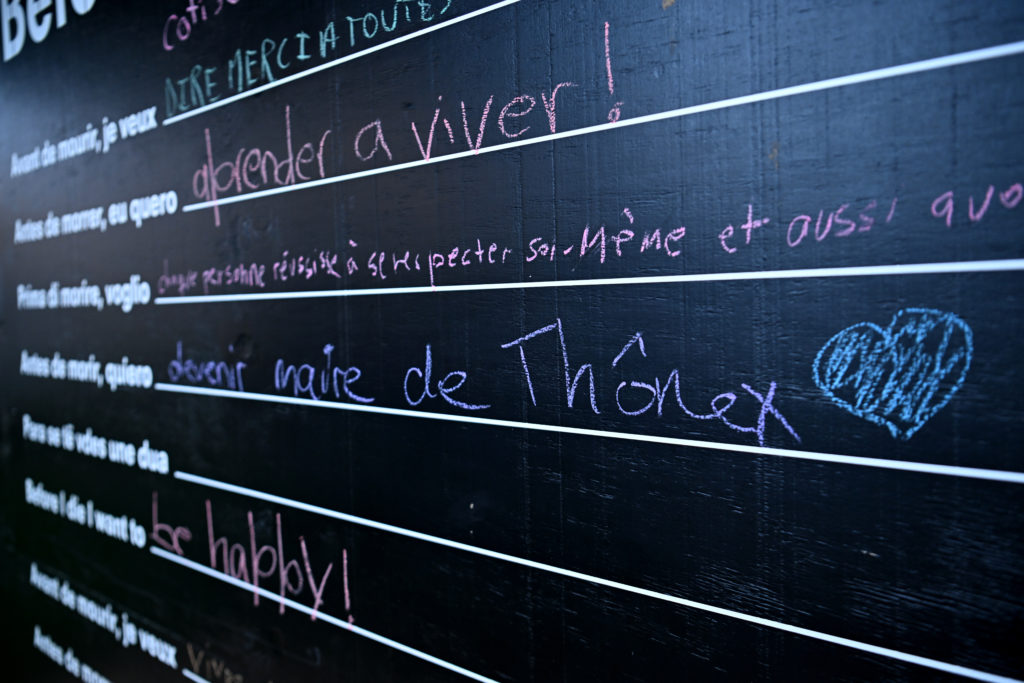 Befo
cotis
Avant de mourir, je veux DIRE MERCI A TOUTES
Antes de morrer, eu quero aprender a viver !
Prima di morire, voglio chaque personne réussisse à se respecter soi-Même et aussi
Antes de morir, quiero devenir maire de Thônex
Para se të vdes une dua
Before I die I want to be happy!
Avant de mourir, je veux
Antes de